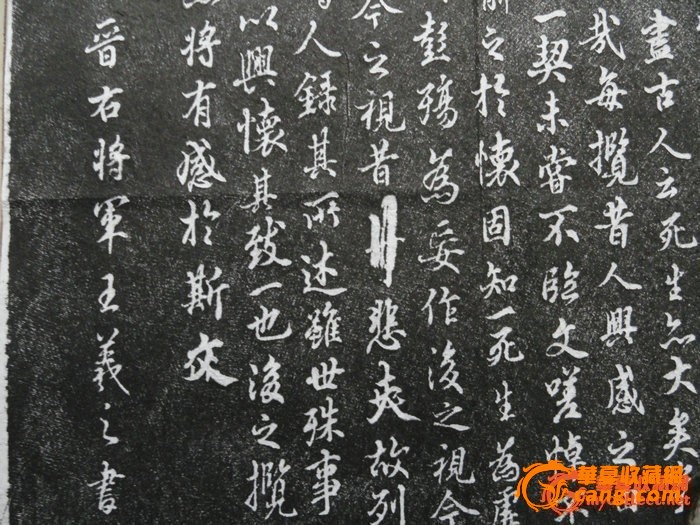 盡古人云死生亦大矣
哉每攬昔人興感之由
一契未嘗不臨文嗟悼不
之於懷固知一死生為虛
彭殤為妄作後之視今
今之視昔悲夫故列
人錄其所述雖世殊事
以興懷其致一也後之攬
將有感於斯文
晉右將軍王羲之書
華夏收藏網
cang.com